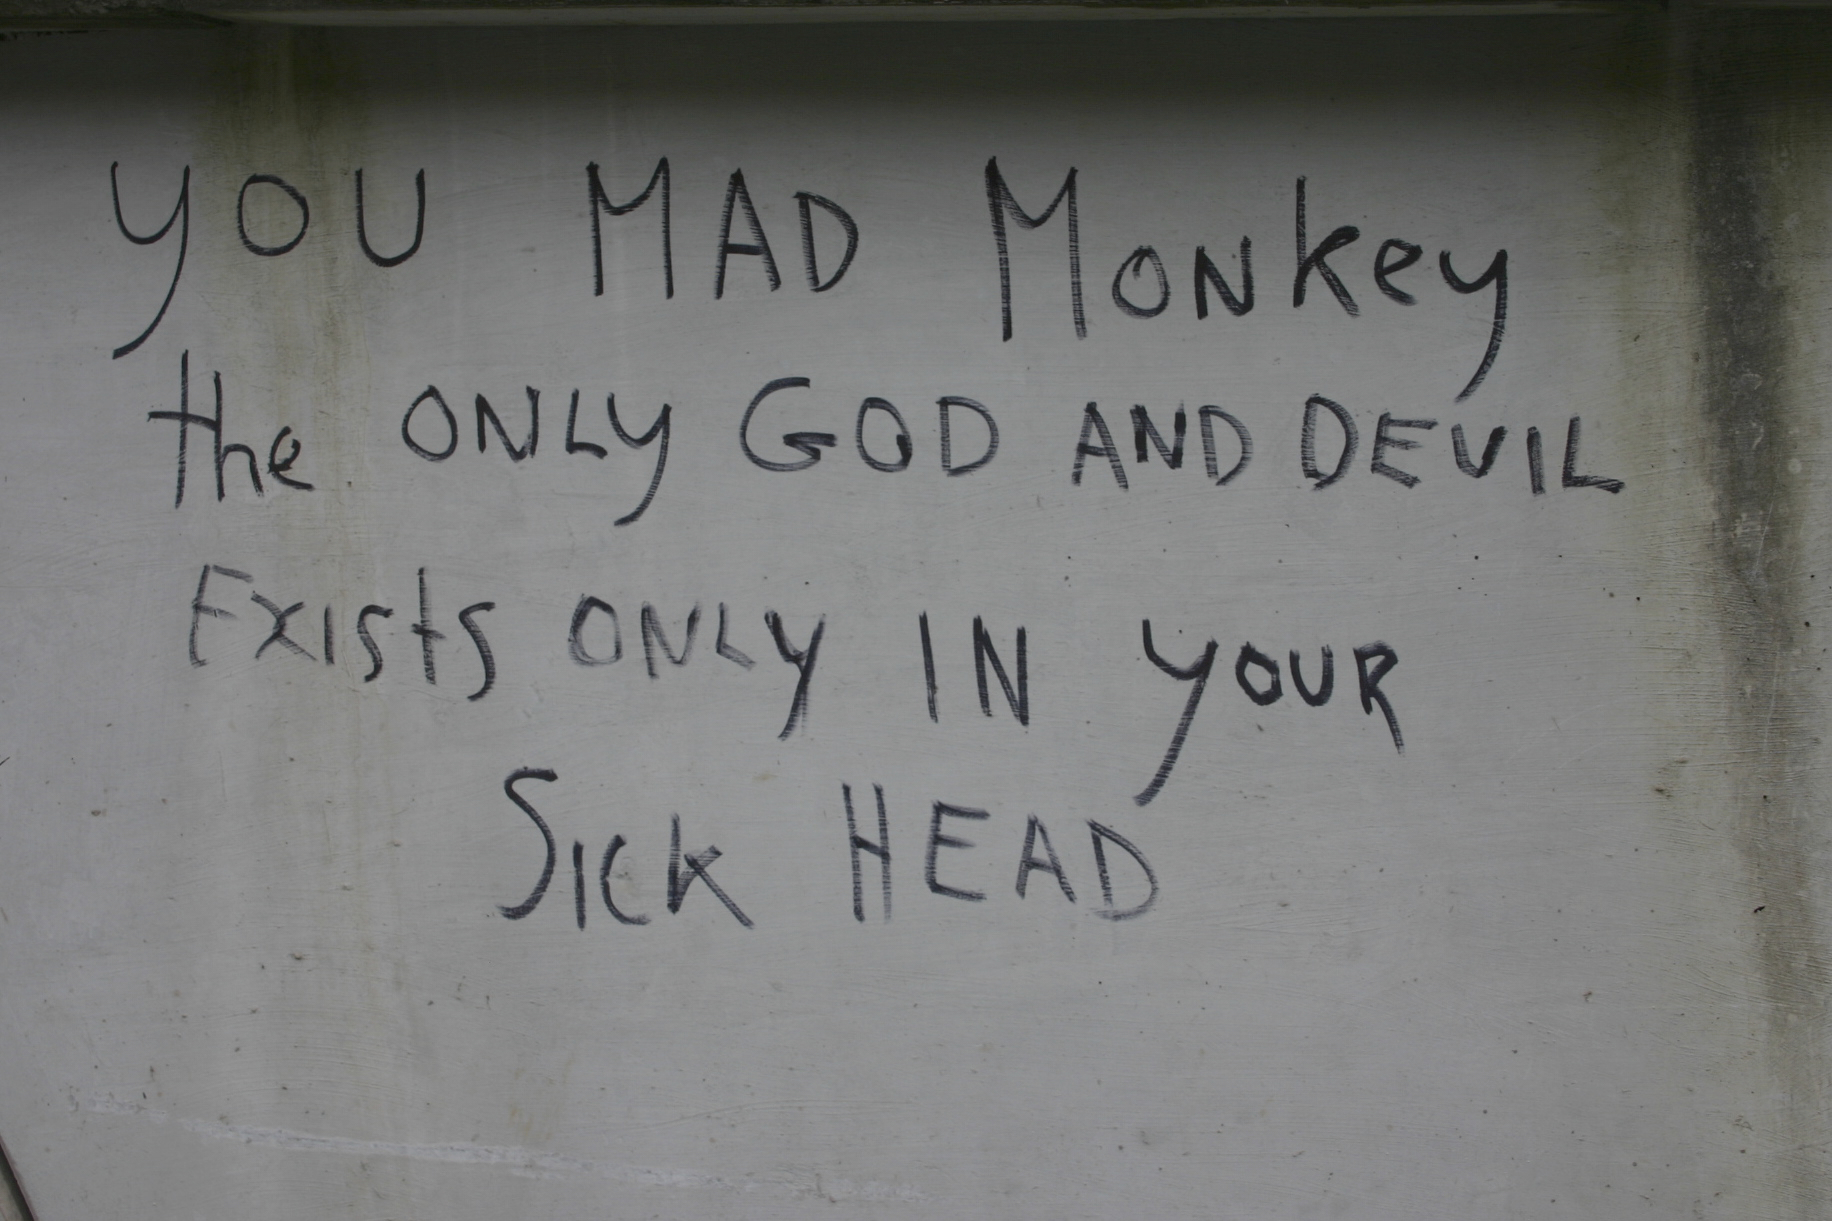 YOU MAD Monkey
the ONLY GOD AND DEVIL
ExIsts ONLY IN YOUR
SIck HEAD